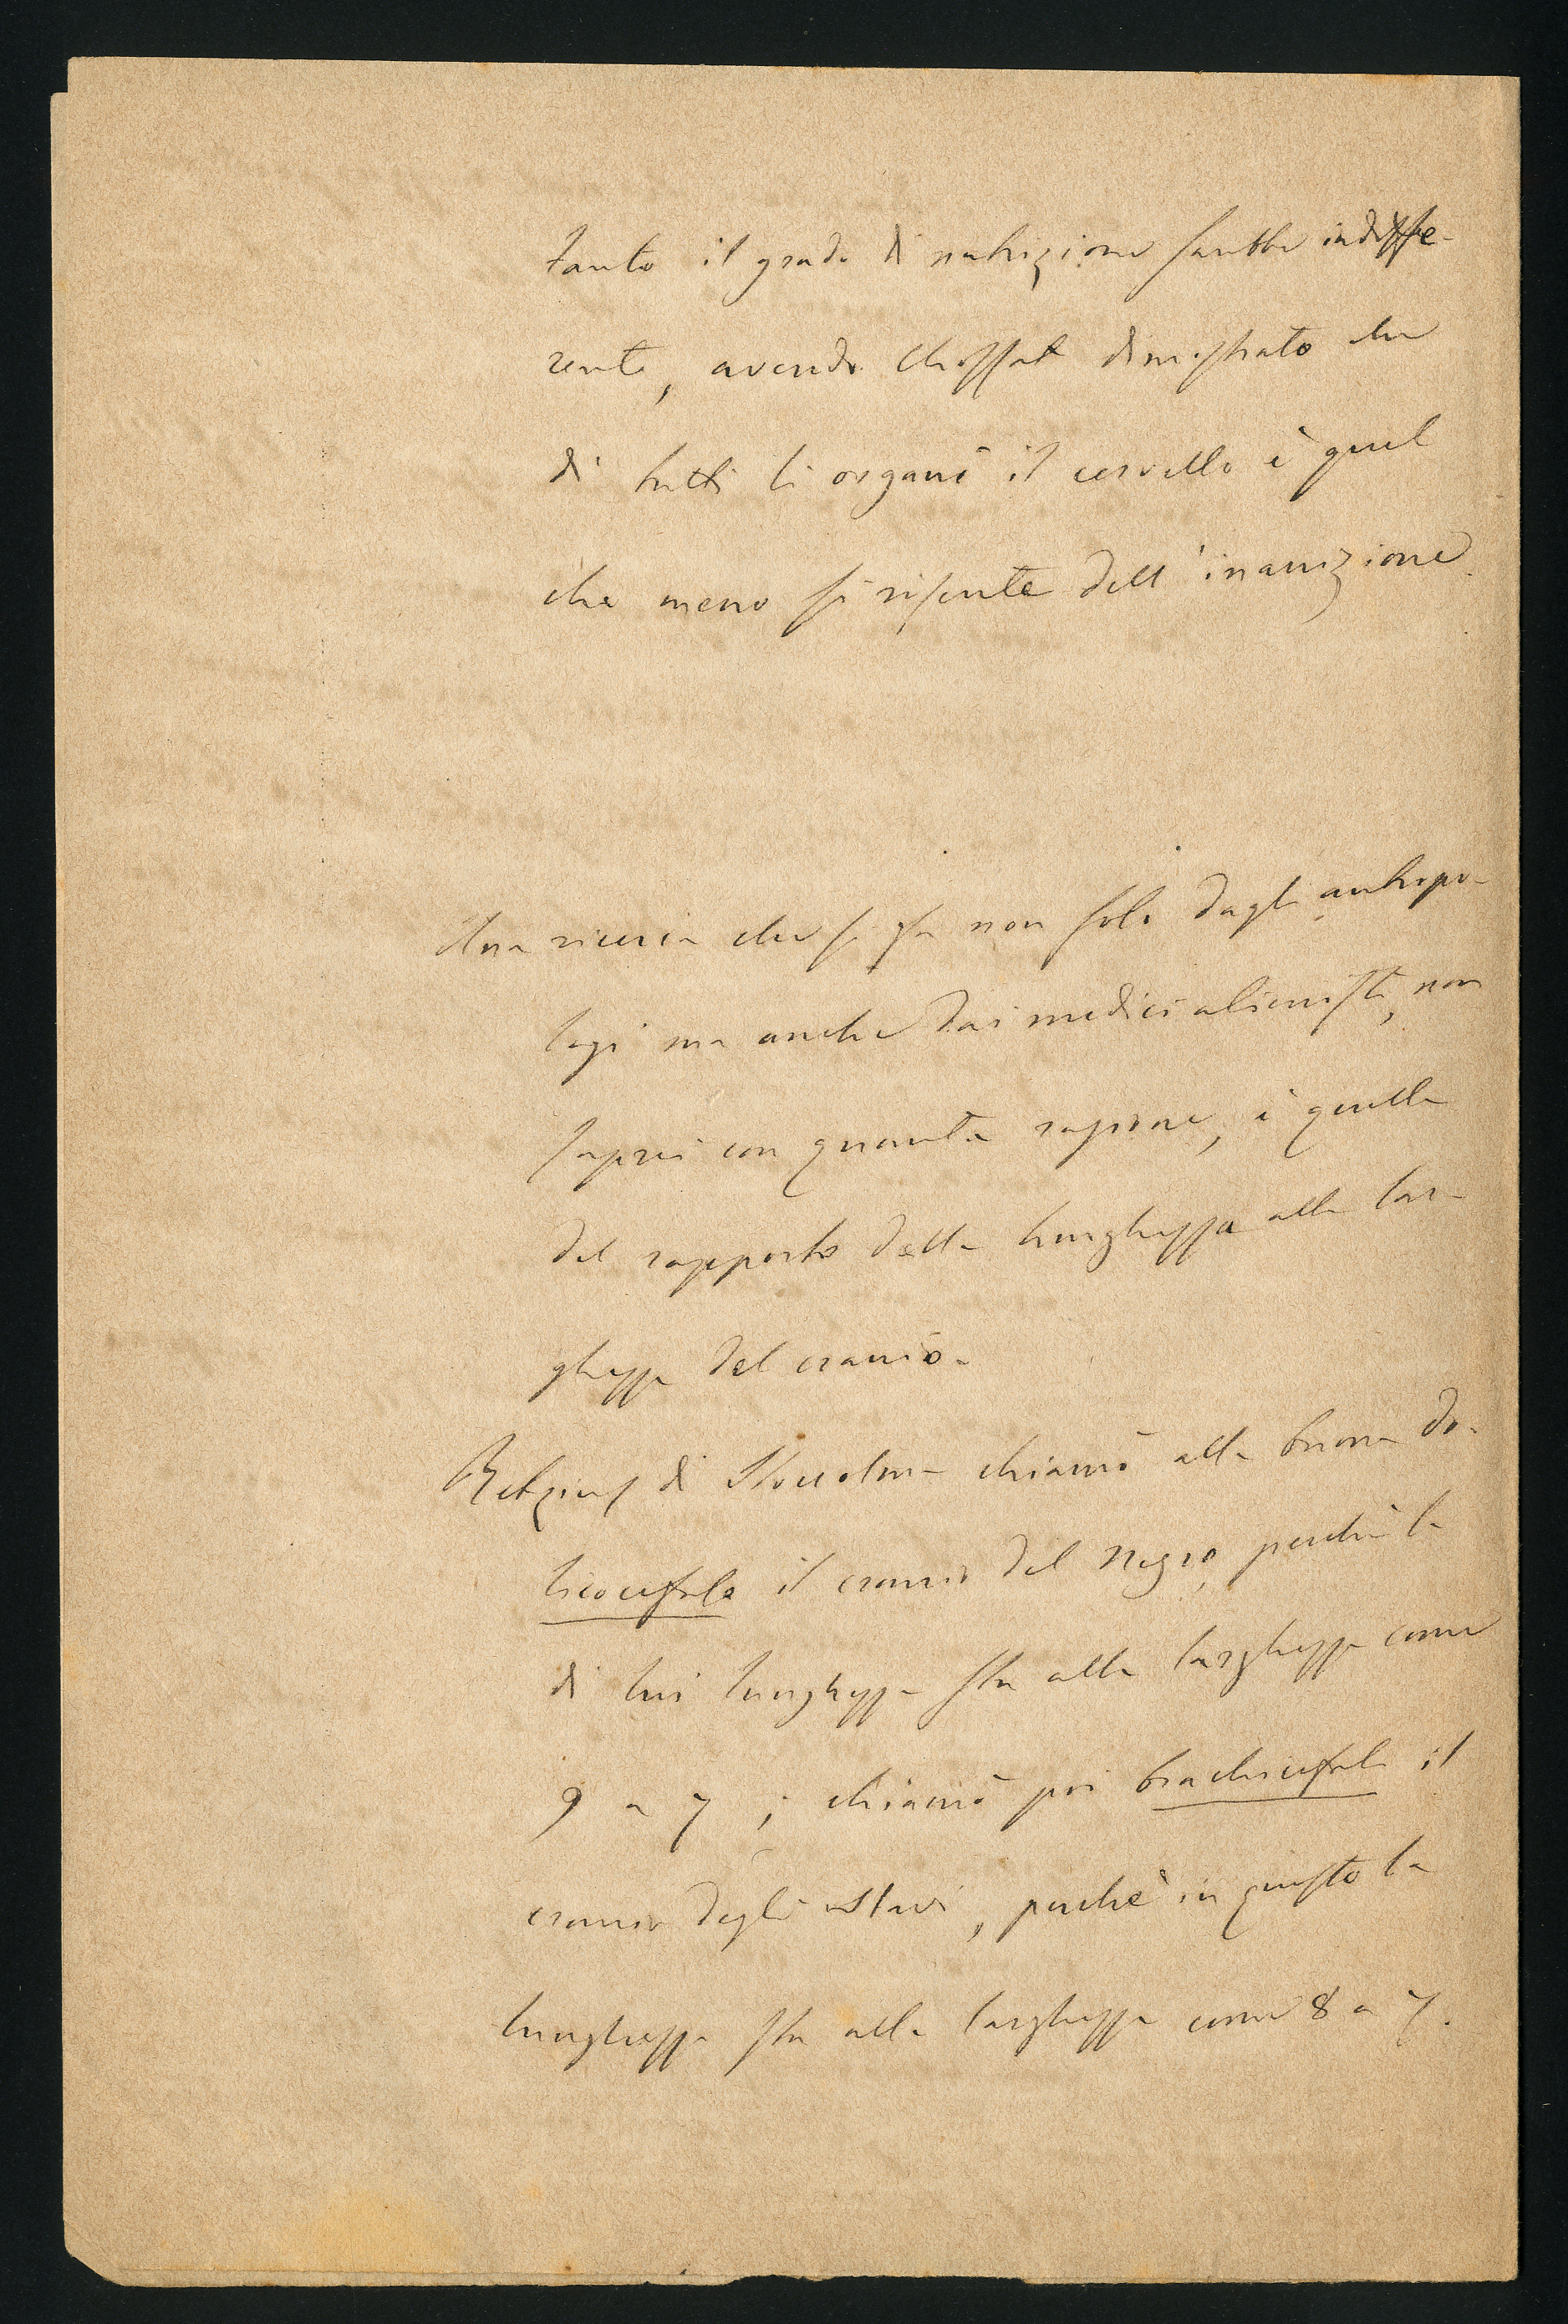 tanto il grado di nutrizione sarebbe indiffe-
rente, avendo Chossat dimostrato che
di tutti li organi il cervello è quel
che meno si risente dell'inanizione.
Una ricerca che si fa non solo dagli antropo-
logi ma anche dai medici alienisti, non
saprei con quanta ragione, è quella
del rapporto della lunghezza alla lar-
ghezza del cranio.
Retzius di Stoccolma chiamò alla buona do-
licocefalo il cranio del negro, perchè la
di lui lunghezza sta alla larghezza come
9 a 7; chiamò poi brachicefalo il
cranio degli slavi, perchè in questo la
lunghezza sta alla larghezza come 8 a 7.